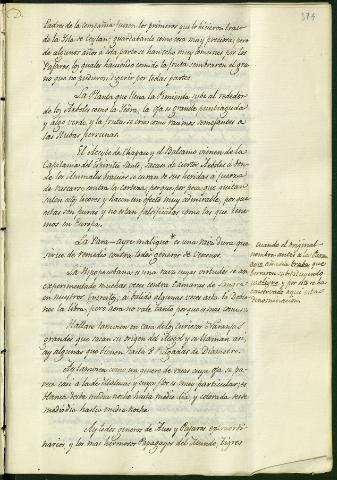 374
Padres de la Compañia fueron los primeros que lo hicieron traer
de la Isla de Ceylan, guardandole como cosa muy preciosa; pero
de algunos años a esta parte se ha hecho muy comun por los
Pajaros, los quales haviendo comido la fruta sembraron el gra-
no que no pudieron digerir por todas partes.
La Planta que lleva la Pimienta sube al rededor
de los Arboles como la Yedra, la oja es grande puntiaguda
y algo verde, y la fruta se cria como racimos semejantes a
las Ubas pequeñas.
El Aceyte de Copayu y el Balsamo vienen de la
Capitania del Espiritu Santo, sacase de ciertos Arboles a don-
de los Animales bravios se curan de sus heridas a fuerza
de rascarse contra la corteza, porque por poco que quitan
salen estos licores y hacen un efecto muy admirable, porque
estas son puras y no estan falsificadas como las que tene-
mos en Europa.
La Para-ayre maligno es una raiz de
de remedio contra todos generos de Venenos.
La Hypecacuana es una raiz cuyas virtudes se han
experimentado muchas veces contra Camaras de Sangre
en nuestros
la libra, pero aora no vale tanto porque es mas comun.
Hallan tambien en casa de los Curiosos Naranjas
grandes que sacan su origen del
ay algunas que tienen hasta 8 Pulgadas de Diametro.
Ay tambien como un genero de rosas cuya oja se pa-
rece casi a la de y cuya flor es muy particular; es
blanca desde media noche hasta medio dia, y colorada desde
medio dia hasta media noche.
Ay todos generos de Aves y Pajaros extraordi-
narios, y los mas hermosos Papagayos del Mundo, tigres
cuando el original
nombra antes a la Para
ayre
borraron substituyendo
maligno, y por esto se ha
conservado aqui estas
denominacion.